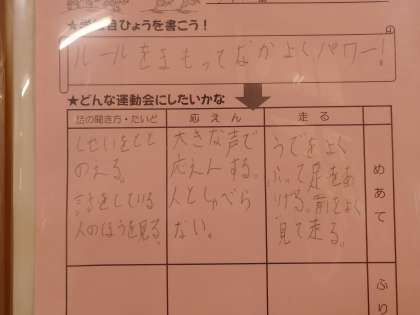 目ひょうを書こう！
ルールをまもってなかよくパワー！
★どんな運動会にしたいかな
話の聞き方・たいど
応えん
走る
めあて
しせいをとと
のえる。
話をしている
人のほうを見る。
大きな声で
応えんする。
人としゃべら
ない。
うでをよく
ふって足をあ
げる。前をよく
見て走る。
ふり